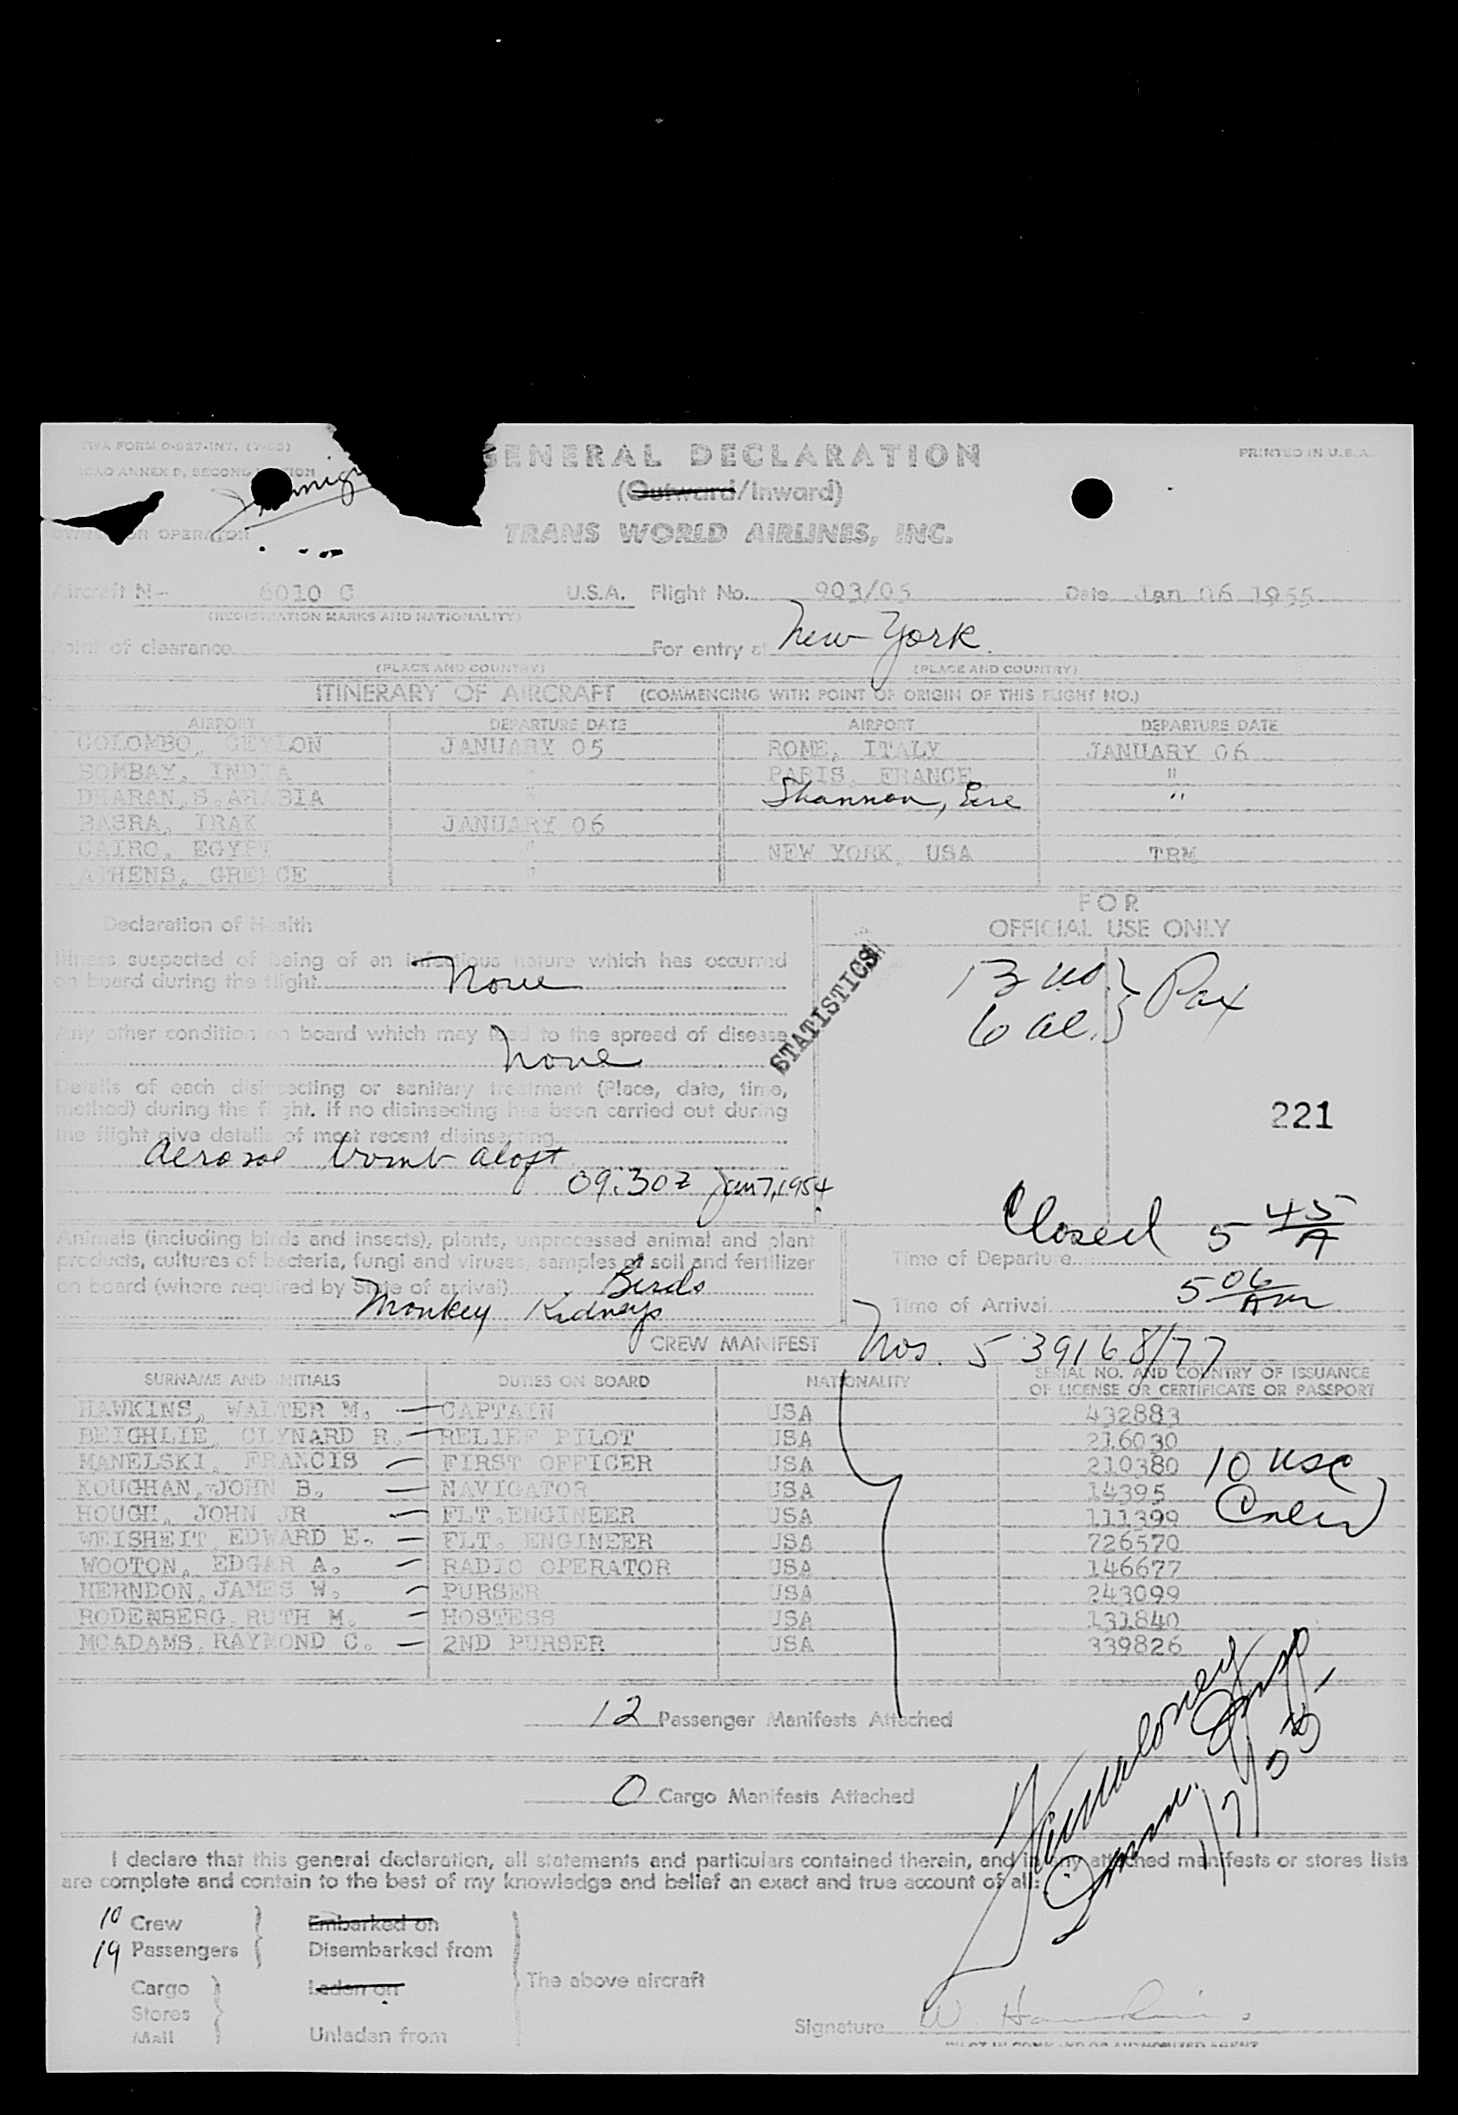 TWA FORM O-927-INT.
PRINTED IN U.S.A.
ICAO ANNEX 9, SECOND EDITION
GENERAL DECLARATION
(Outward/Inward)
OPERATOR
TRANS WORLD AIRLINES, INC.
Aircraft N- 6010 C U.S.A. Flight No. 903/05 Date Jan 06 1955
(REGISTRATION MARKS AND NATIONALITY)
Point of clearance For entry at New York
(PLACE AND COUNTRY) (PLACE AND COUNTRY)
ITINERARY OF AIRCRAFT (COMMENCING WITH POINT OF ORIGIN OF THIS FLIGHT NO.)
AIRPORT DEPARTURE DATE AIRPORT DEPARTURE DATE
COLOMBO, CEYLON JANUARY 05 ROME, ITALY JANUARY 06
BOMBAY, INDIA " PARIS, FRANCE "
DHARAN, S. ARABIA " Shannon, Eire "
BASRA, IRAK JANUARY 06
CAIRO, EGYPT " NEW YORK, USA TRM
ATHENS, GREECE "
Declaration of Health
FOR
OFFICIAL USE ONLY
Illness suspected of being of an infectious nature which has occurred
on board during the flight None
13 us. } Pax
6 al. }
STATISTICS
Any other condition on board which may lead to the spread of disease
None
Details of each disinsecting or sanitary treatment (Place, date, time,
method) during the flight. If no disinsecting has been carried out during
the flight give details of most recent disinsecting
221
aerosol bomb aloft
09:30z Jan 7, 1954
Closed 5 45/A
Animals (including birds and insects), plants, unprocessed animal and plant
products, cultures of bacteria, fungi and viruses, samples of soil and fertilizer
on board (where required by State of arrival) Birds
Monkey Kidneys
Time of Departure
Time of Arrival 5 06/Am
CREW MANIFEST Nos. 5 39168/77
SURNAME AND INITIALS DUTIES ON BOARD NATIONALITY SERIAL NO. AND COUNTRY OF ISSUANCE
OF LICENSE OR CERTIFICATE OR PASSPORT
HAWKINS, WALTER M. CAPTAIN USA 432883
BEIGHLIE, CLYNARD R. RELIEF PILOT USA 216030
MANELSKI, FRANCIS FIRST OFFICER USA 210380
KOUGHAN, JOHN B. NAVIGATOR USA 14395
HOUGH, JOHN JR FLT.ENGINEER USA 111399
WEISHEIT, EDWARD E. FLT. ENGINEER USA 726570
WOOTON, EDGAR A. RADIO OPERATOR USA 146677
HERNDON, JAMES W. PURSER USA 243099
RODENBERG, RUTH M. HOSTESS USA 131840
MCADAMS, RAYMOND C. 2ND PURSER USA 339826
10 usc
Crew
12 Passenger Manifests Attached
0 Cargo Manifests Attached
1/7/55
I declare that this general declaration, all statements and particulars contained therein, and in any attached manifests or stores lists
are complete and contain to the best of my knowledge and belief an exact and true account of all:
10 Crew Embarked on
19 Passengers Disembarked from
The above aircraft
Cargo Laden on
Stores
Mail Unladen from
Signature W. Hawkins
PILOT IN COMMAND OR AUTHORIZED AGENT